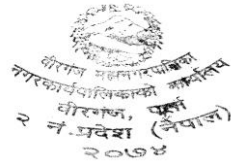 वीरगंज महानगरपालिका
नगरकार्यपालिकाको कार्यालय
वीरगंज, पर्सा
२ नं प्रदेश (नेपाल)
२०७४